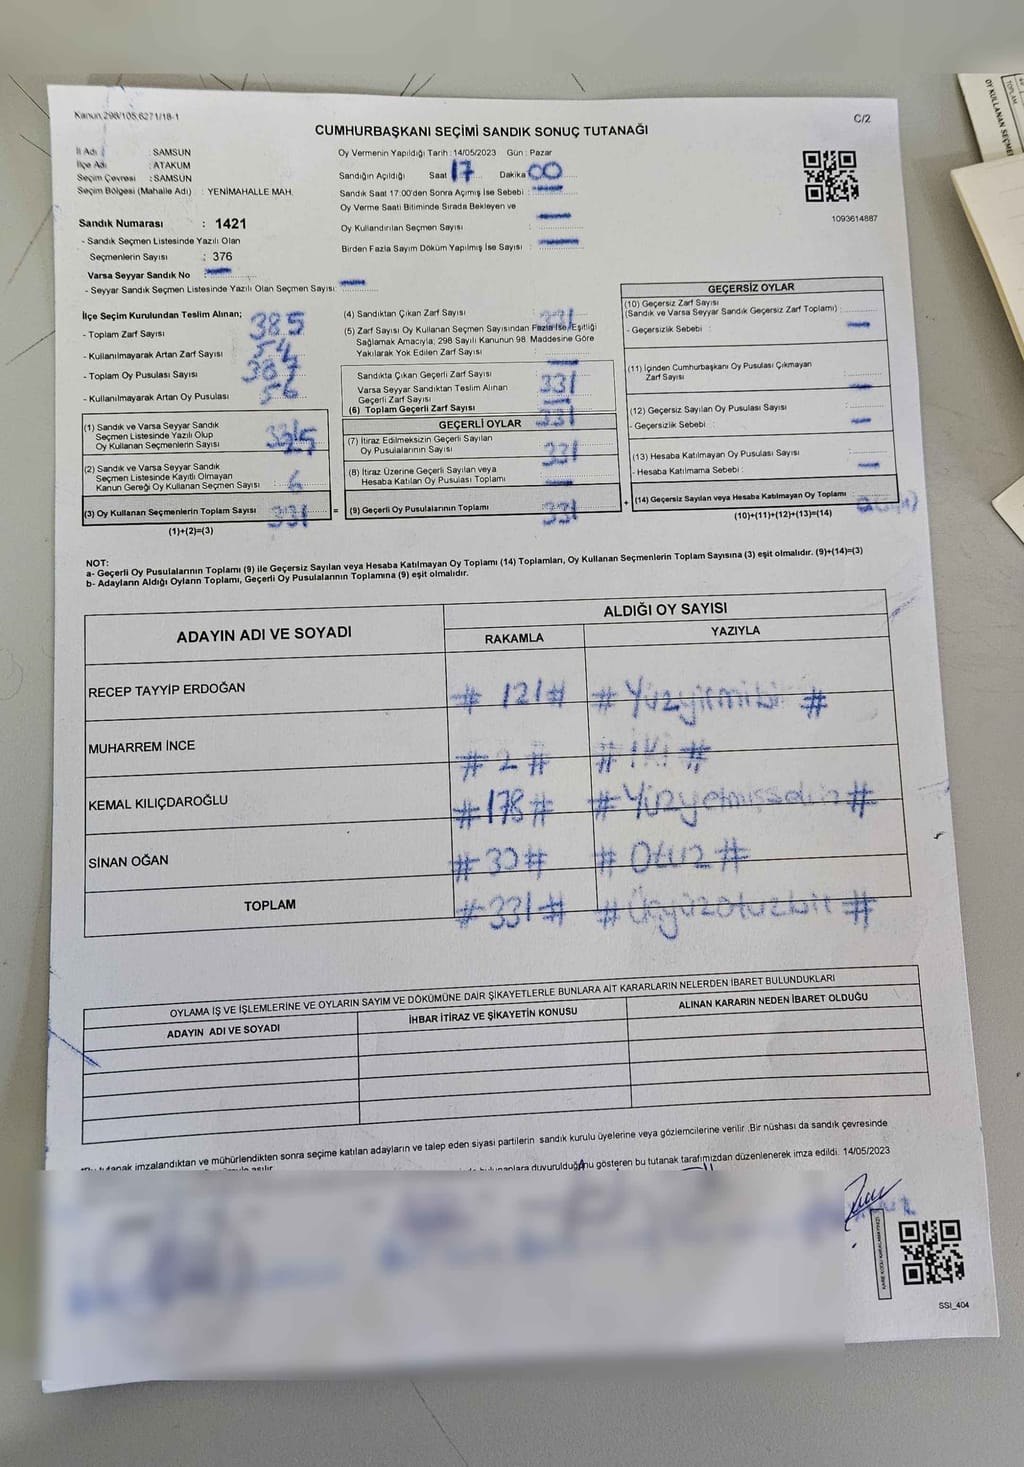 Kanun,298/105,6271/18-1
C/2
CUMHURBAŞKANI SEÇİMİ SANDIK SONUÇ TUTANAĞI
İl Adı : SAMSUN
İlçe Adı : ATAKUM
Seçim Çevresi : SAMSUN
Seçim Bölgesi (Mahalle Adı) : YENİMAHALLE MAH.
Oy Vermenin Yapıldığı Tarih : 14/05/2023 Gün : Pazar
Sandığın Açıldığı Saat 17 Dakika 00
Sandık Saat 17:00'den Sonra Açımış İse Sebebi :
Oy Verme Saati Bitiminde Sırada Bekleyen ve
Oy Kullandırılan Seçmen Sayısı :
Birden Fazla Sayım Döküm Yapılmış İse Sayısı :
1093614887
Sandık Numarası : 1421
- Sandık Seçmen Listesinde Yazılı Olan
Seçmenlerin Sayısı : 376
Varsa Seyyar Sandık No
- Seyyar Sandık Seçmen Listesinde Yazılı Olan Seçmen Sayısı:
İlçe Seçim Kurulundan Teslim Alınan;
- Toplam Zarf Sayısı 385
- Kullanılmayarak Artan Zarf Sayısı 54
- Toplam Oy Pusulası Sayısı 387
- Kullanılmayarak Artan Oy Pusulası 56
(1) Sandık ve Varsa Seyyar Sandık
Seçmen Listesinde Yazılı Olup
Oy Kullanan Seçmenlerin Sayısı
(2) Sandık ve Varsa Seyyar Sandık
Seçmen Listesinde Kayıtlı Olmayan
Kanun Gereği Oy Kullanan Seçmen Sayısı : 6
(3) Oy Kullanan Seçmenlerin Toplam Sayısı 331
(1)+(2)=(3)
(4) Sandıktan Çıkan Zarf Sayısı 331
(5) Zarf Sayısı Oy Kullanan Seçmen Sayısından Fazla İse, Eşitliği
Sağlamak Amacıyla; 298 Sayılı Kanunun 98. Maddesine Göre
Yakılarak Yok Edilen Zarf Sayısı
Sandıkta Çıkan Geçerli Zarf Sayısı 331
Varsa Seyyar Sandıktan Teslim Alınan
Geçerli Zarf Sayısı
(6) Toplam Geçerli Zarf Sayısı 331
GEÇERLİ OYLAR
(7) İtiraz Edilmeksizin Geçerli Sayılan
Oy Pusulalarının Sayısı 331
(8) İtiraz Üzerine Geçerli Sayılan veya
Hesaba Katılan Oy Pusulası Toplamı
= (9) Geçerli Oy Pusulalarının Toplamı 331
GEÇERSİZ OYLAR
(10) Geçersiz Zarf Sayısı
(Sandık ve Varsa Seyyar Sandık Geçersiz Zarf Toplamı) :
- Geçersizlik Sebebi :
(11) İçinden Cumhurbaşkanı Oy Pusulası Çıkmayan
Zarf Sayısı
(12) Geçersiz Sayılan Oy Pusulası Sayısı
- Geçersizlik Sebebi :
(13) Hesaba Katılmayan Oy Pusulası Sayısı
- Hesaba Katılmama Sebebi :
+ (14) Geçersiz Sayılan veya Hesaba Katılmayan Oy Toplamı
(10)+(11)+(12)+(13)=(14)
NOT:
a- Geçerli Oy Pusulalarının Toplamı (9) ile Geçersiz Sayılan veya Hesaba Katılmayan Oy Toplamı (14) Toplamları, Oy Kullanan Seçmenlerin Toplam Sayısına (3) eşit olmalıdır. (9)+(14)=(3)
b- Adayların Aldığı Oyların Toplamı, Geçerli Oy Pusulalarının Toplamına (9) eşit olmalıdır.
ADAYIN ADI VE SOYADI
ALDIĞI OY SAYISI
RAKAMLA YAZIYLA
RECEP TAYYİP ERDOĞAN # 121 # # Yüzyirmibir #
MUHARREM İNCE # 2 # # İki #
KEMAL KILIÇDAROĞLU # 178 # # Yüzyetmişsekiz #
SİNAN OĞAN # 30 # # Otuz #
TOPLAM # 331 # # Üçyüzotuzbir #
OYLAMA İŞ VE İŞLEMLERİNE VE OYLARIN SAYIM VE DÖKÜMÜNE DAİR ŞİKAYETLERLE BUNLARA AİT KARARLARIN NELERDEN İBARET BULUNDUKLARI
ADAYIN ADI VE SOYADI İHBAR İTİRAZ VE ŞİKAYETİN KONUSU ALINAN KARARIN NEDEN İBARET OLDUĞU
tutanak imzalandıktan ve mühürlendikten sonra seçime katılan adayların ve talep eden siyasi partilerin sandık kurulu üyelerine veya gözlemcilerine verilir .Bir nüshası da sandık çevresinde
bulunanlara duyurulduğunu gösteren bu tutanak tarafımızdan düzenlenerek imza edildi. 14/05/2023
SSI_404
OY KULLANAN SEÇMEN
TOPLAM